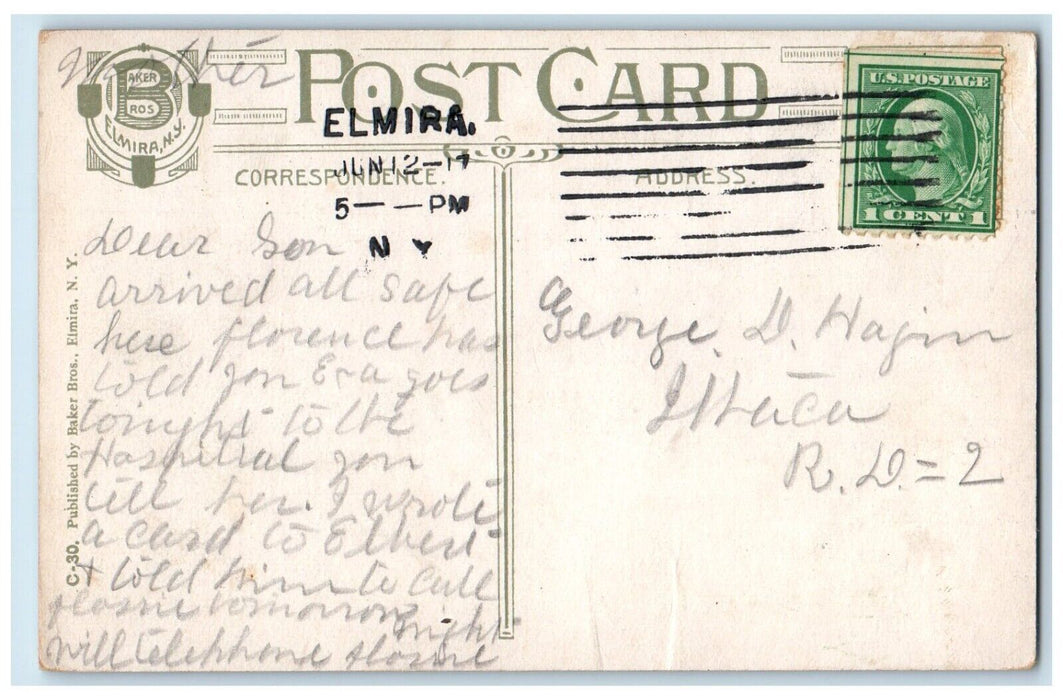 Mother
BAKER
BROS
ELMIRA, N.Y.
POST CARD
ELMIRA.
JUN 12-17
5 — — PM
N Y
CORRESPONDENCE.
ADDRESS.
U.S. POSTAGE
1 CENT 1
C-30. Published by Baker Bros., Elmira, N. Y.
Dear Son
arrived all safe
here florence has
told you Eva goes
tonight to the
Hospitial you
tell her. I wrote
a card to Elbert
+ told him to Call
flossie tomorrow
night
will telephone flossie
George. D. Hagin
Ithaca
R. D. = 2